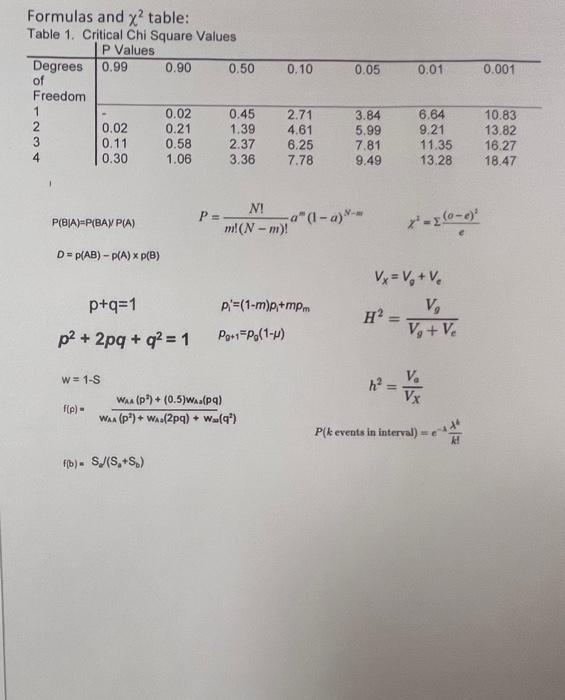 Formulas and χ² table:
Table 1. Critical Chi Square Values
P Values
Degrees of Freedom 0.99 0.90 0.50 0.10 0.05 0.01 0.001
1 - 0.02 0.45 2.71 3.84 6.64 10.83
2 0.02 0.21 1.39 4.61 5.99 9.21 13.82
3 0.11 0.58 2.37 6.25 7.81 11.35 16.27
4 0.30 1.06 3.36 7.78 9.49 13.28 18.47
P(B|A)=P(BA)/ P(A)
P = N!/(m!(N − m)!) a^m (1 − a)^(N−m)
χ² = Σ (o−e)²/e
D = p(AB) – p(A) x p(B)
V_X = V_g + V_e
p+q=1
p_i'=(1-m)p_i+mp_m
H² = V_g/(V_g + V_e)
p² + 2pq + q² = 1
p_g+1=p_g(1-μ)
w = 1-S
h² = V_a/V_X
f(p) = (w_AA (p²) + (0.5)w_Aa(pq))/(w_AA (p²) + w_Aa(2pq) + w_aa(q²))
P(k events in interval) = e^(−λ) λ^k/k!
f(b) = S_a/(S_a+S_b)